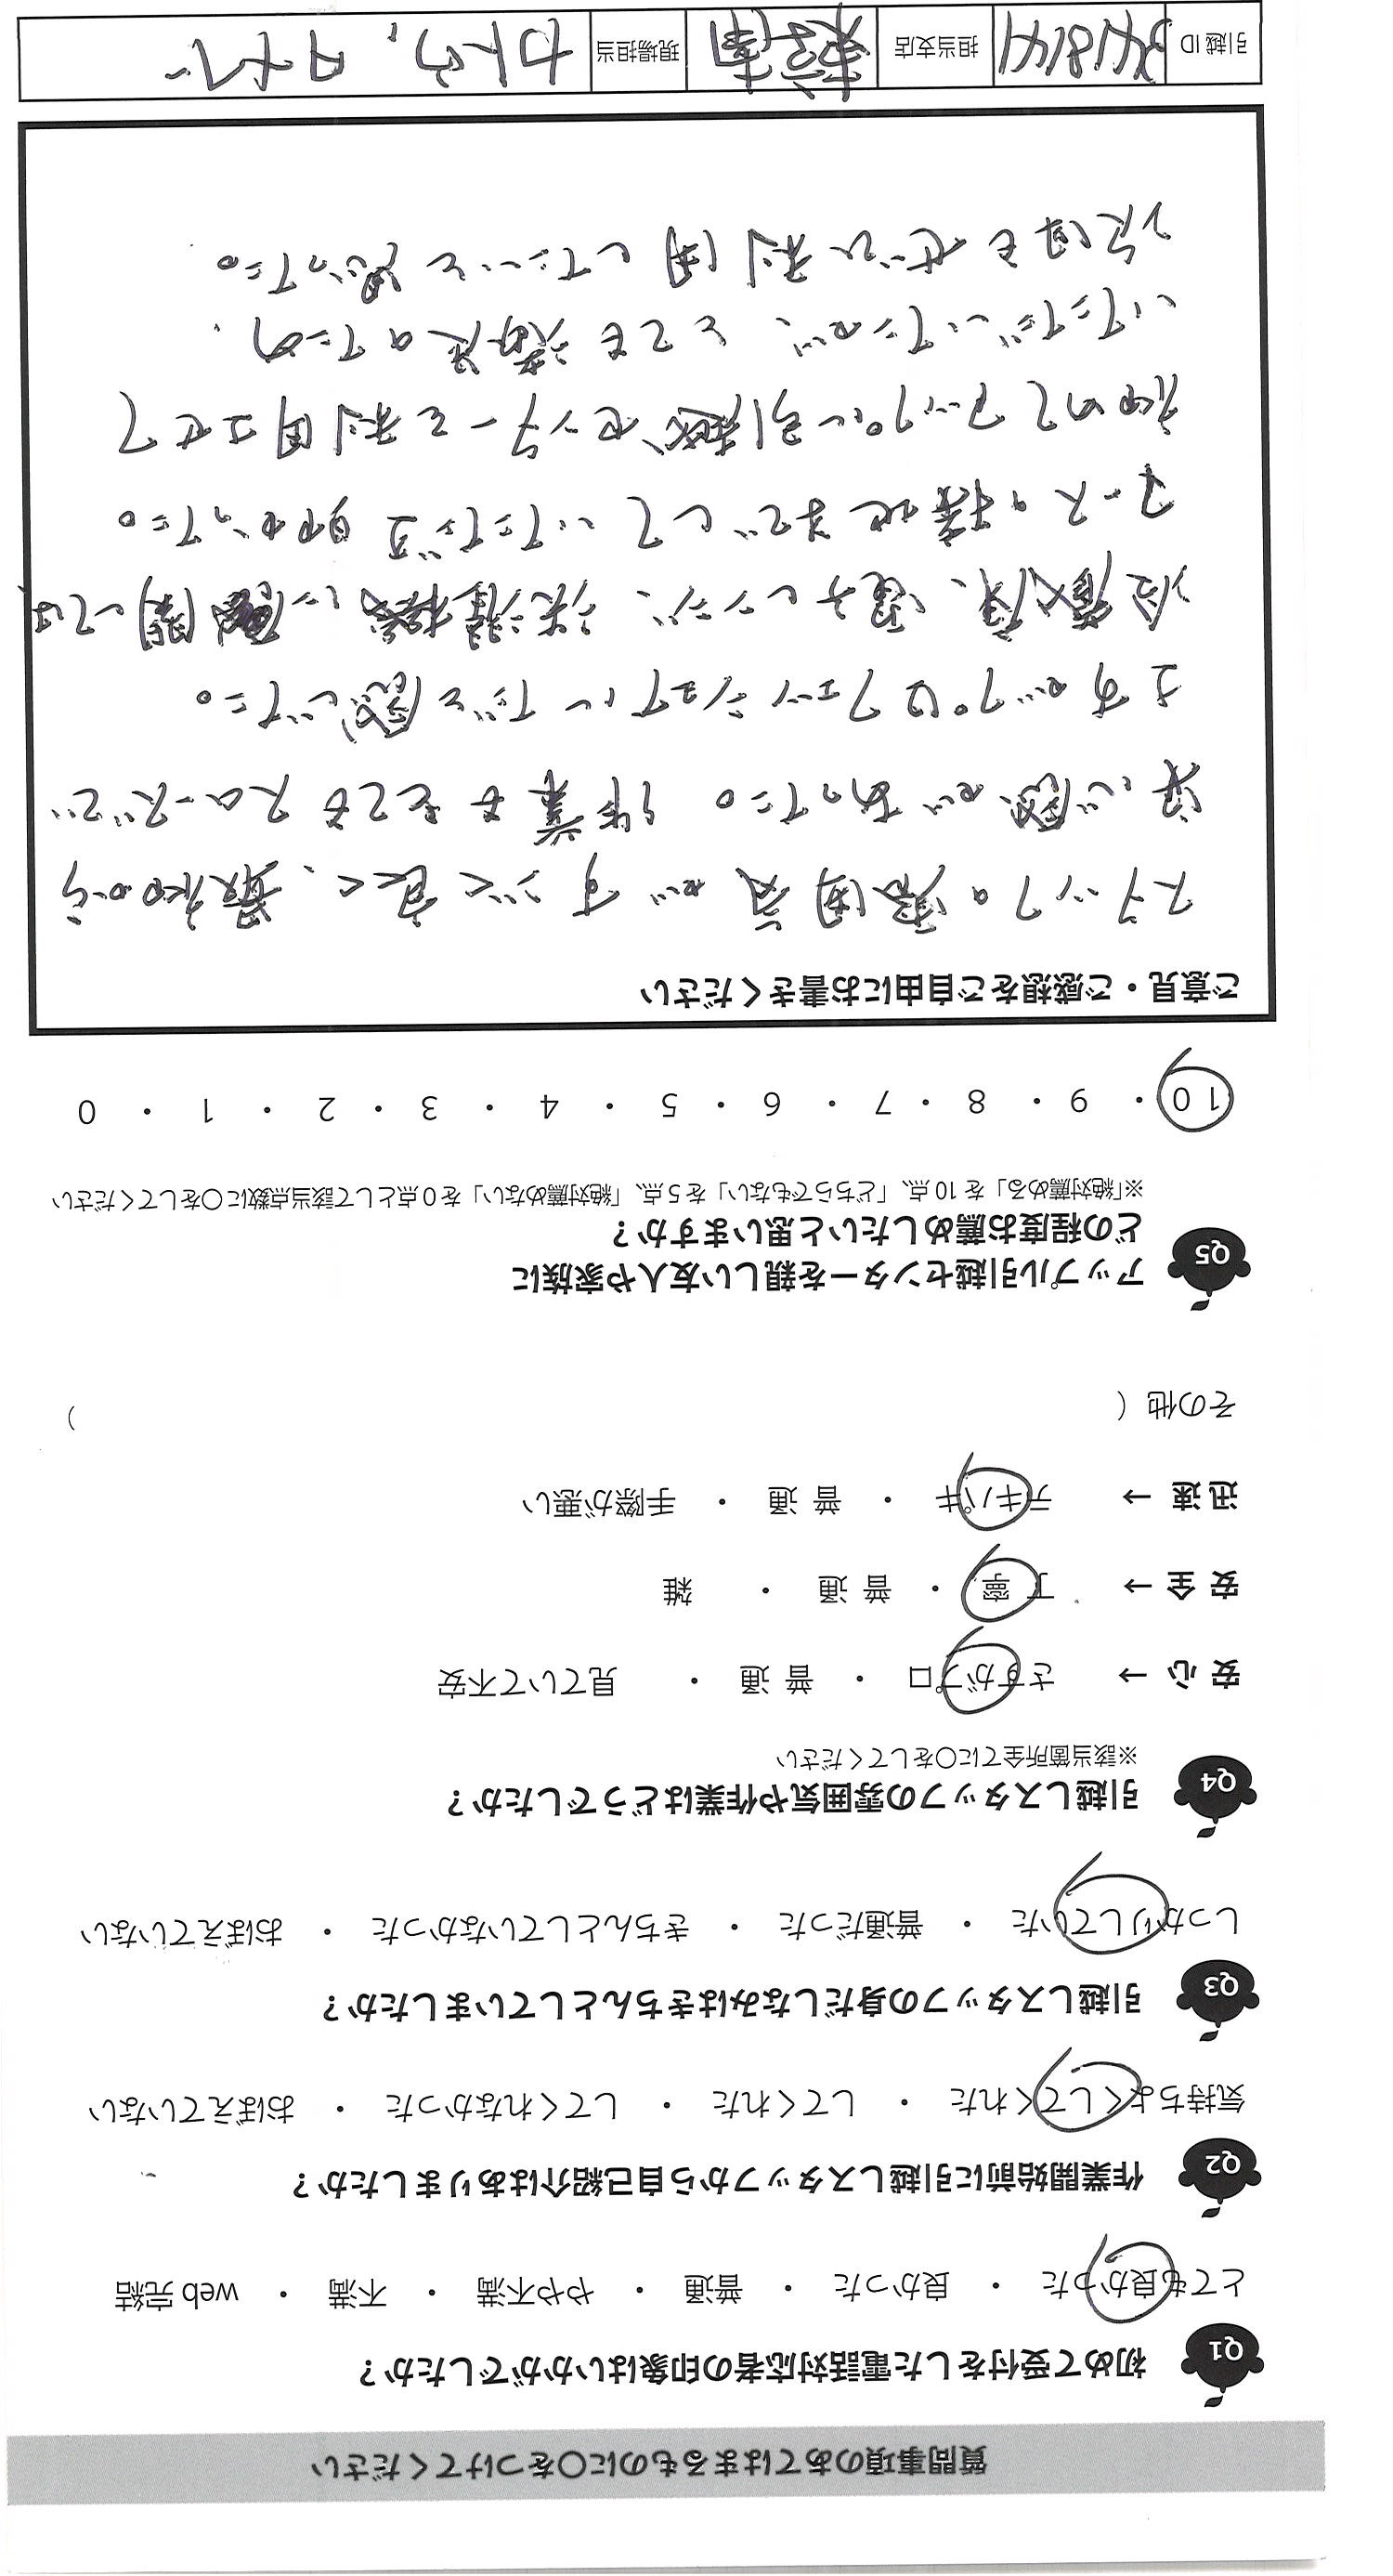 質問事項のあてはまるものに○をつけてください
Q1 初めて受付をした電話対応者の印象はいかがでしたか？
とても良かった ・ 良かった ・ 普通 ・ やや不満 ・ 不満 ・ web 完結
Q2 作業開始前に引越しスタッフから自己紹介はありましたか？
気持ちよくしてくれた ・ してくれた ・ してくれなかった ・ おぼえていない
Q3 引越しスタッフの身だしなみはきちんとしていましたか？
しっかりしていた ・ 普通だった ・ きちんとしていなかった ・ おぼえていない
Q4 引越しスタッフの雰囲気や作業はどうでしたか？
※該当箇所全てに○をしてください
安 心 → さすがプロ ・ 普 通 ・ 見ていて不安
安 全 → 丁 寧 ・ 普 通 ・ 雑
迅 速 → テキパキ ・ 普 通 ・ 手際が悪い
その他（ ）
Q5 アップル引越センターを親しい友人や家族に
どの程度お薦めしたいと思いますか？
※「絶対薦める」を 10 点、「どちらでもない」を 5 点、「絶対薦めない」を 0 点として該当点数に○をしてください
10 ・ 9 ・ 8 ・ 7 ・ 6 ・ 5 ・ 4 ・ 3 ・ 2 ・ 1 ・ 0
ご意見・ご感想をご自由にお書きください
スタッフの雰囲気がすごく良く、最初から
安心感があった。作業もとてもスムーズで
さすがプロフェッショナルだと感じた。
冷蔵庫、電子レンジ、洗濯機に関しては
アースの接地までしていただき助かった。
初めてアップル引越センターを利用させて
いただいたが、とても満足のため、
次回もぜひ利用したいと思った。
引越 ID 担当支店 現場担当 カトウ、